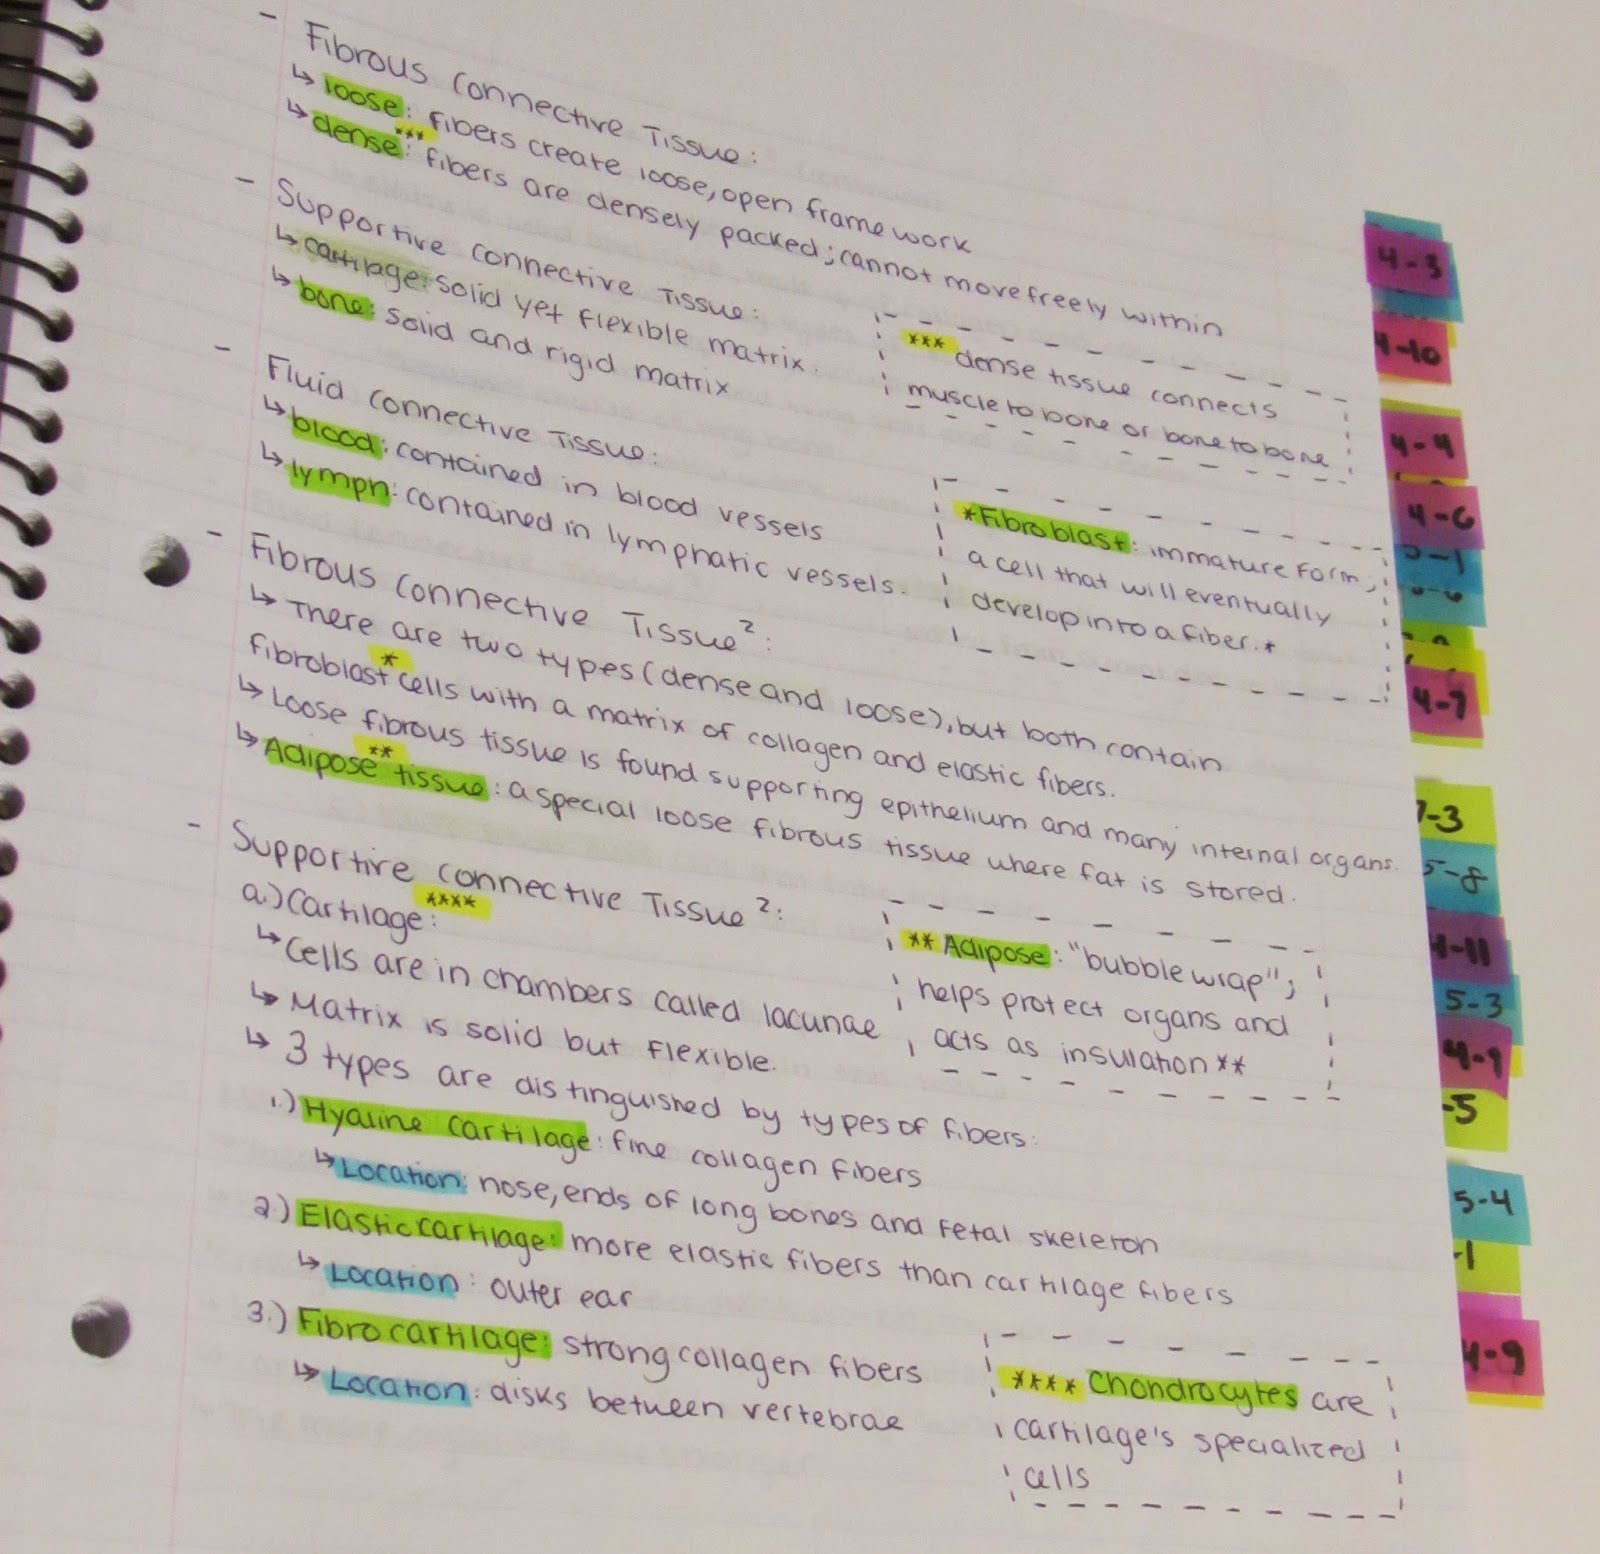 - Fibrous Connective Tissue:
↳ loose: fibers create loose, open framework
↳ dense***: fibers are densely packed; cannot move freely within
- Supportive Connective Tissue:
↳ cartilage: solid yet flexible matrix.
↳ bone: solid and rigid matrix
*** dense tissue connects
muscle to bone or bone to bone
- Fluid Connective Tissue:
↳ blood: contained in blood vessels
↳ lymph: contained in lymphatic vessels.
*Fibroblast: immature form;
a cell that will eventually
develop into a fiber.*
- Fibrous Connective Tissue²:
↳ There are two types (dense and loose), but both contain
fibroblast* cells with a matrix of collagen and elastic fibers.
↳ Loose fibrous tissue is found supporting epithelium and many internal organs.
↳ Adipose** tissue: a special loose fibrous tissue where fat is stored.
- Supportive Connective Tissue²:
a.) Cartilage****:
↳ Cells are in chambers called lacunae
↳ Matrix is solid but flexible.
↳ 3 types are distinguished by types of fibers:
** Adipose: "bubble wrap";
helps protect organs and
acts as insulation**
1.) Hyaline cartilage: fine collagen fibers
↳ Location: nose, ends of long bones and fetal skeleton
2.) Elastic cartilage: more elastic fibers than cartilage fibers
↳ Location: outer ear
3.) Fibrocartilage: strong collagen fibers
↳ Location: disks between vertebrae
**** Chondrocytes are
cartilage's specialized
cells
4-3
4-10
4-4
4-6
5-1
4-7
7-3
5-8
4-11
5-3
4-1
-5
5-4
-1
4-9